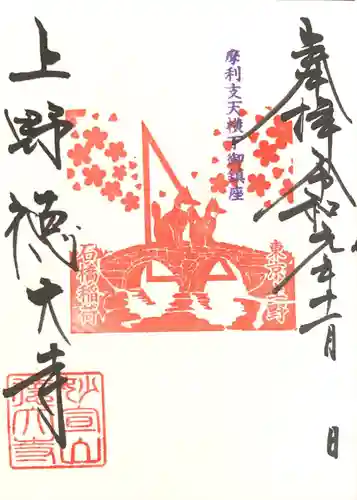 奉拝 令和元年十一月 日
摩利支天横下御鎮座
東京上野
石橋稲荷
上野徳大寺
妙宣山
徳大寺